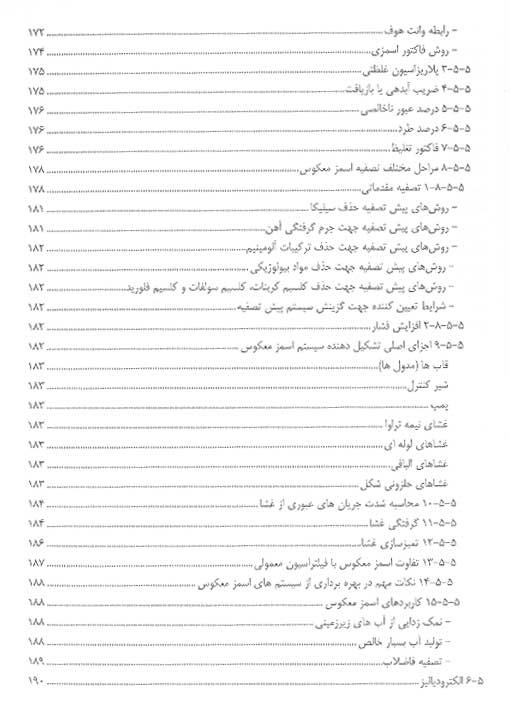 - رابطه وانت هوف ۱۷۲
- روش فاکتور اسمزی ۱۷۴
۵-۵-۳ پلاریزاسیون غلظتی ۱۷۵
۵-۵-۴ ضریب آبدهی یا بازیافت ۱۷۵
۵-۵-۵ درصد عبور ناخالصی ۱۷۶
۵-۵-۶ درصد طرد ۱۷۶
۵-۵-۷ فاکتور تغلیظ ۱۷۶
۵-۵-۸ مراحل مختلف تصفیه اسمز معکوس ۱۷۸
۵-۵-۸-۱ تصفیه مقدماتی ۱۷۸
- روش‌های پیش تصفیه حذف سیلیکا ۱۸۱
- روش‌های پیش تصفیه جهت جرم گرفتگی آهن ۱۸۱
- روش‌های پیش تصفیه جهت حذف ترکیبات آلومینیم ۱۸۲
- روش‌های پیش تصفیه جهت حذف مواد بیولوژیکی ۱۸۲
- روش‌های پیش تصفیه جهت حذف کلسیم کربنات، کلسیم سولفات و کلسیم فلورید ۱۸۲
- شرایط تعیین کننده جهت گزینش سیستم پیش تصفیه ۱۸۲
۵-۵-۸-۲ افزایش فشار ۱۸۲
۵-۵-۹ اجزای اصلی تشکیل دهنده سیستم اسمز معکوس ۱۸۲
قاب ها (مدول ها) ۱۸۳
شیر کنترل ۱۸۳
پمپ ۱۸۳
غشای نیمه تراوا ۱۸۳
غشاهای لوله ای ۱۸۳
غشاهای الیافی ۱۸۳
غشاهای حلزونی شکل ۱۸۳
۵-۵-۱۰ محاسبه شدت جریان های عبوری از غشا ۱۸۴
۵-۵-۱۱ گرفتگی غشا ۱۸۴
۵-۵-۱۲ تمیزسازی غشا ۱۸۶
۵-۵-۱۳ تفاوت اسمز معکوس با فیلتراسیون معمولی ۱۸۷
۵-۵-۱۴ نکات مهم در بهره برداری از سیستم های اسمز معکوس ۱۸۸
۵-۵-۱۵ کاربردهای اسمز معکوس ۱۸۸
- نمک زدایی از آب های زیرزمینی ۱۸۸
- تولید آب بسیار خالص ۱۸۸
- تصفیه فاضلاب ۱۸۹
۵-۶ الکترودیالیز ۱۹۰